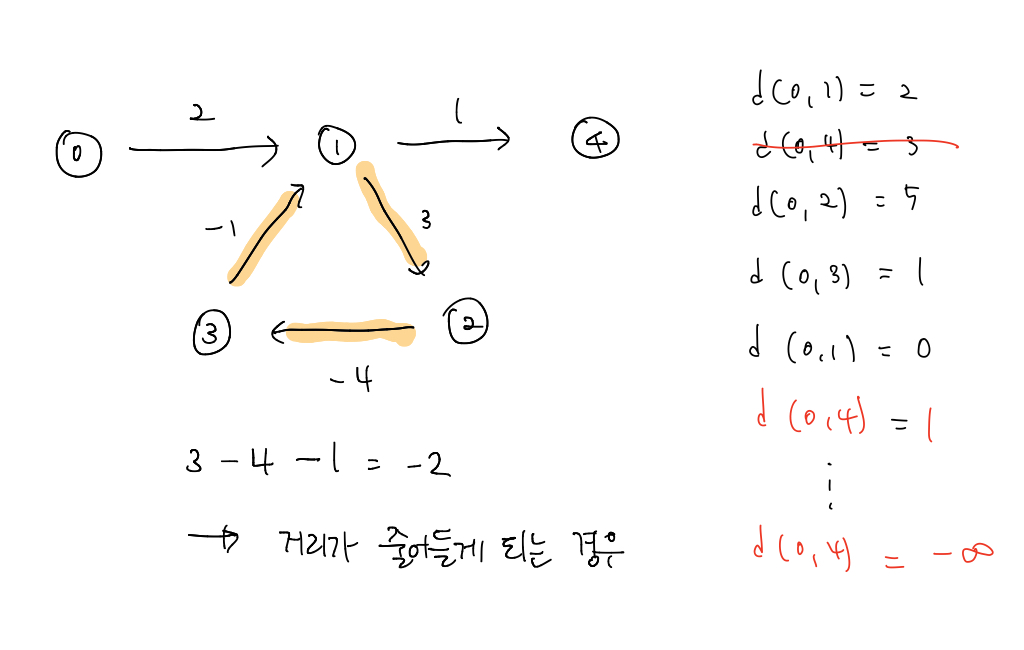 2
1
0
1
4
-1
3
3
2
-4
3 - 4 - 1 = -2
→ 거리가 줄어들게 되는 경우
d(0,1) = 2
d(0,4) = 3
d(0,2) = 5
d(0,3) = 1
d(0,1) = 0
d(0,4) = 1
⋮
d(0,4) = -∞